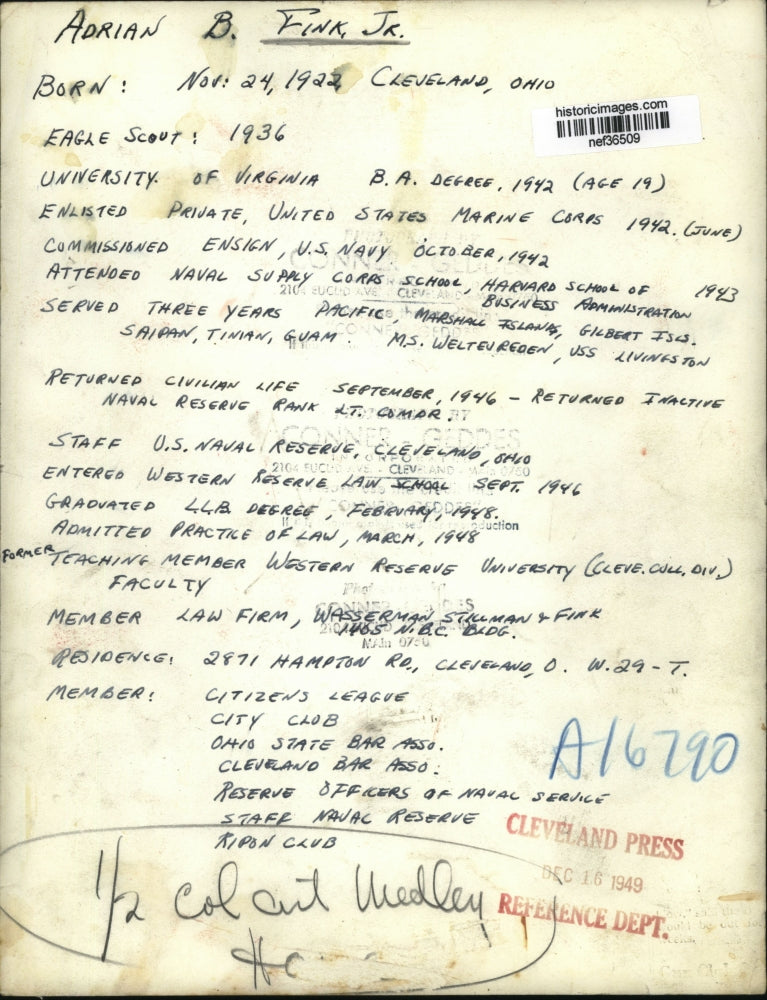 ADRIAN B. FINK, JR.
BORN: NOV: 24, 1922 CLEVELAND, OHIO
historicimages.com
nef36509
EAGLE SCOUT: 1936
UNIVERSITY OF VIRGINIA B.A. DEGREE, 1942 (AGE 19)
ENLISTED PRIVATE, UNITED STATES MARINE CORPS 1942. (JUNE)
COMMISSIONED ENSIGN, U.S. NAVY OCTOBER, 1942
ATTENDED NAVAL SUPPLY CORPS SCHOOL, HARVARD SCHOOL OF BUSINESS ADMINISTRATION 1943
SERVED THREE YEARS PACIFIC, MARSHALL ISLANDS, GILBERT ISLS.
SAIPAN, TINIAN, GUAM. M.S. WELTEVREDEN, USS LIVINGSTON
RETURNED CIVILIAN LIFE SEPTEMBER, 1946 - RETURNED INACTIVE
NAVAL RESERVE RANK LT. COMDR.
CONNER - GEDDES
STAFF U.S. NAVAL RESERVE, CLEVELAND, OHIO
2104 EUCLID AVE. - CLEVELAND - MAin 0750
ENTERED WESTERN RESERVE LAW SCHOOL SEPT. 1946
GRADUATED LLB. DEGREE, FEBRUARY, 1948.
ADMITTED PRACTICE OF LAW, MARCH, 1948
FORMER TEACHING MEMBER WESTERN RESERVE UNIVERSITY (CLEVE. COLL. DIV.)
FACULTY
MEMBER LAW FIRM, WASSERMAN STILLMAN & FINK
1465 N.B.C. BLDG.
MAin 0750
RESIDENCE: 2871 HAMPTON RD., CLEVELAND, O. W.29-T.
MEMBER: CITIZENS LEAGUE
CITY CLUB
OHIO STATE BAR ASSO.
CLEVELAND BAR ASSO.
RESERVE OFFICERS OF NAVAL SERVICE
STAFF NAVAL RESERVE
RIPON CLUB
A16790
CLEVELAND PRESS
DEC 16 1949
REFERENCE DEPT.
1/2 col cut Medley